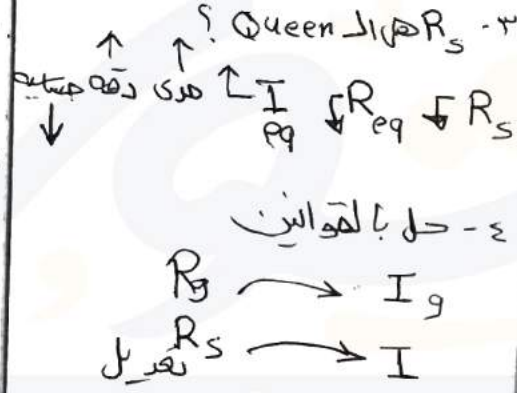 ٣- R_s هي ال Queen ؟
↓ R_s ↓ R_eq ↑ I_eq ↑ مدى ↑ دقة حساسية ↓
٤- حل بالقوانين
R_g → I_g
R_s تعديل → I